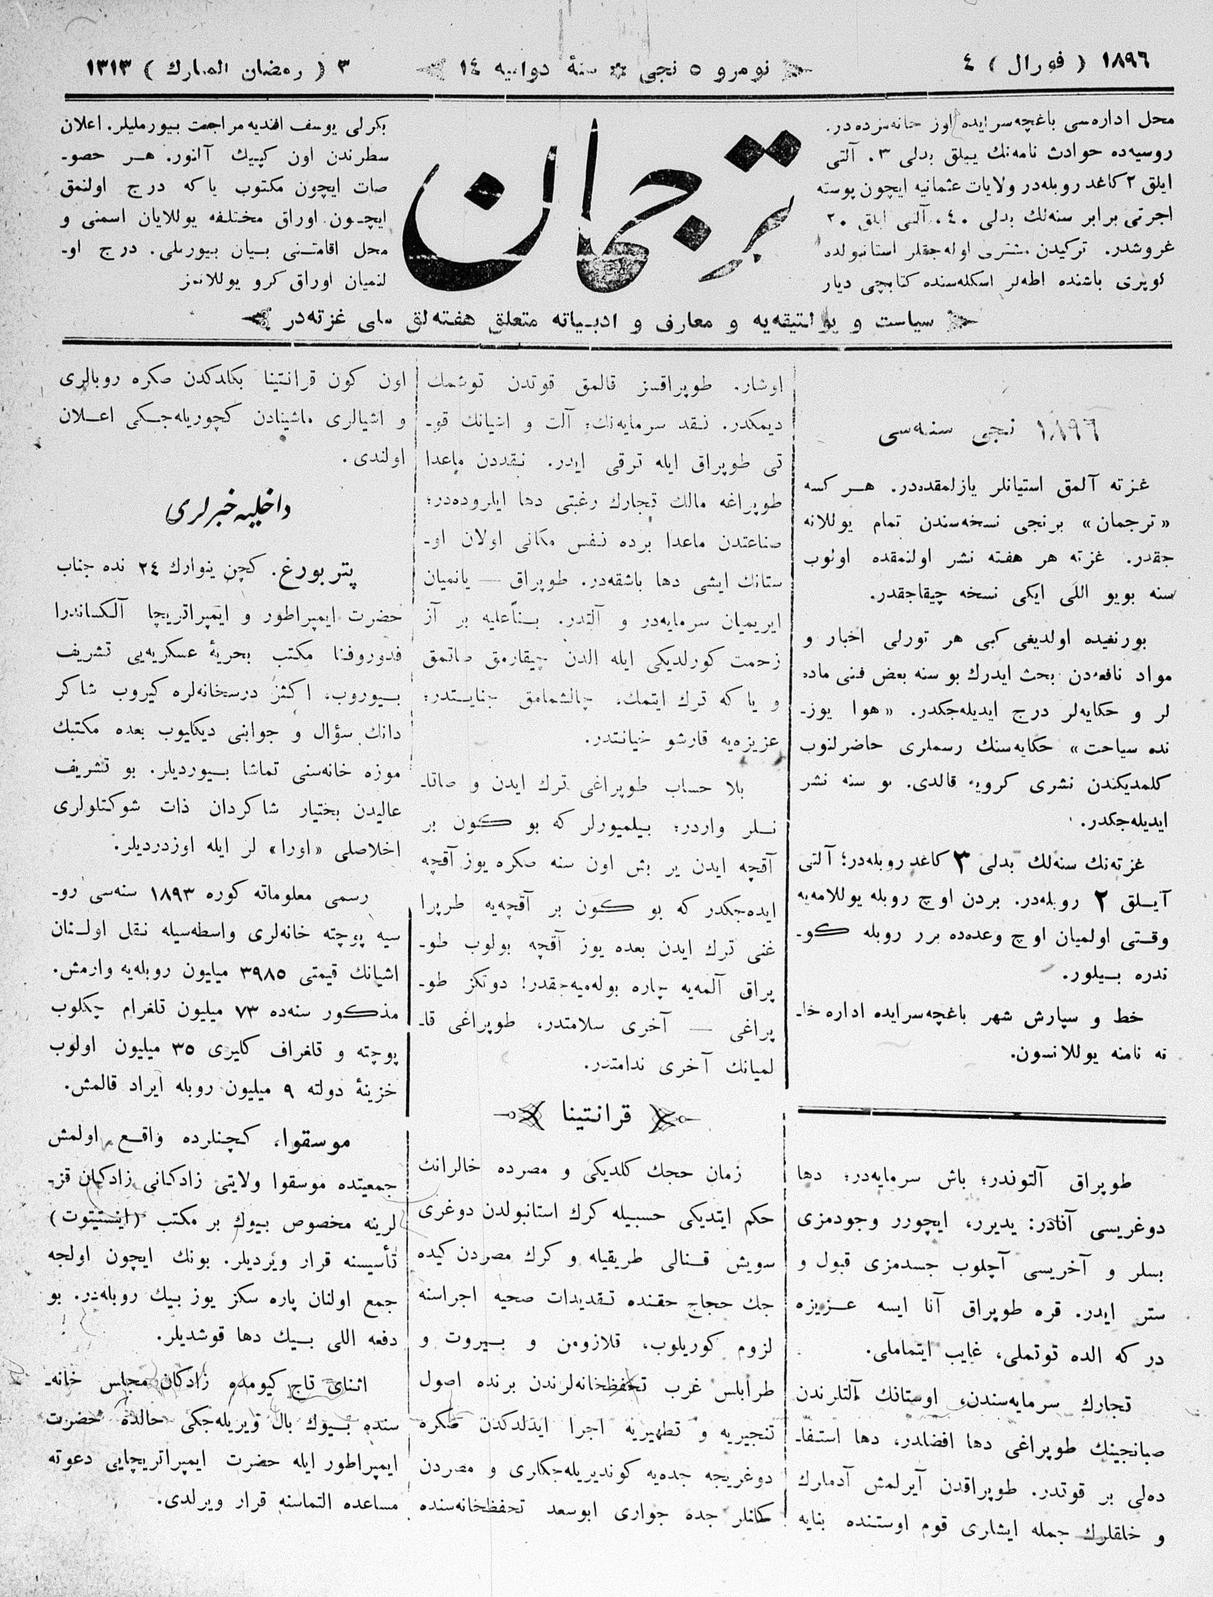 ١٨٩٦ ( فورال ) ٤
نومرو ٥ نجی ✲ سنۀ دوامیه ١٤
٣ ( رمضان المبارك ) ١٣١٣
محل اداره‌سی باغچه‌سرایده اوز خانه‌مزده‌در.
روسیه‌ده حوادث نامه‌نك ییللق بدلی ٣. آلتی
ایلق ٢ کاغد روبله‌در ولایات عثمانیه ایچون پوسته
اجرتی برابر سنه‌لك بدلی ٤٠. آلتی ایلق ٢٠
غروشدر. ترکیدن مشتری اوله‌جقلر استانبولده
کوپری باشنده اطه‌لر اسکله‌سنده کتابچی دیار
ترجمان
بکرلی یوسف افندیه مراجعت بیورملیلر. اعلان
سطرندن اون کپیك آلنور. هر خصو-
صات ایچون مکتوب یا‌که درج اولنمق
ایچون اوراق مختلفه یوللایان اسمنی و
محل اقامتنی بیان بیورملی. درج او-
لنمیان اوراق کرو یوللانمز
سیاست و پولتیقه‌یه و معارف و ادبیاته متعلق هفته‌لق ملی غزته‌در
١٨٩٦ نجی سنه‌سی
غزته آلمق استیانلر یازلمقده‌در. هر کسه
«ترجمان» برنجی نسخه‌سندن تمام یوللانه
جقدر. غزته هر هفته نشر اولنمقده اولوب
سنه بویو اللی ایکی نسخه چیقاجقدر.
بورنغیده اولدیغی کبی هر تورلی اخبار و
مواد نافعه‌دن بحث ایدرك بو سنه بعض فنی ماده
لر و حکایه‌لر درج ایدیله‌جکدر. «هوا یوز-
نده سیاحت» حکایه‌سنك رسملری حاضرلنوب
کلمدیکندن نشری کرویه قالدی. بو سنه نشر
ایدیله‌جکدر.
غزته‌نك سنه‌لك بدلی ٣ کاغد روبله‌در؛ آلتی
آیلق ٢ روبله‌در. بردن اوچ روبله یوللامه‌یه
وقتی اولمیان اوچ وعده‌ده برر روبله کو-
ندره بیلور.
خط و سپارش شهر باغچه‌سرایده اداره خا-
نه نامنه یوللانسون.
طوپراق آلتوندر؛ باش سرمایه‌در؛ دها
دوغریسی آنادر: یدیرر، ایچورر وجودمزی
بسلر و آخریسی آچلوب جسدمزی قبول و
ستر ایدر. قره طوپراق آنا ایسه عزیزه
در که الده توتملی، غایب ایتماملی.
تجارك سرمایه‌سندن، اوستانك آلتلرندن
صبانجینك طوپراغی دها افضلدر، دها استفا-
ده‌لی بر قوتدر. طوپراقدن آیرلمش آدمارك
و خلقلرك جمله ایشاری قوم اوستنده بنایه
اوشار. طوپراقسز قالمق قوتدن توشمك
دیمکدر. نقد سرمایه‌نك؛ آلت و اشیانك قو-
تی طوپراق ایله ترقی ایدر. نقددن ماعدا
طوپراغه مالك تجارك رغبتی دها ایلروده‌در؛
صناعتدن ماعدا برده نفس مکانی اولان او-
ستانك ایشی دها باشقه‌در. طوپراق — یانمیان
ایریمیان سرمایه‌در و آلتدر. بناً علیه بر آز
زحمت کورلدیکی ایله الدن چیقارمق صاتمق
و یا که ترك ایتمك، چالشمامق جنایتدر؛
عزیزه‌یه قارشو خیانتدر.
بلا حساب طوپراغی ترك ایدن و صاتا-
نلر واردر؛ بیلمیورلر که بو کون بر
آقچه ایدن یر بش اون سنه صکره یوز آقچه
ایده‌جکدر که بو کون بر آقچه‌یه طوپرا
غنی ترك ایدن بعده یوز آقچه بولوب طو-
پراق آلمه‌یه چاره بوله‌میه‌جقدر! دوتکز طو-
پراغی — آخری سلامتدر، طوپراغی قا-
لمیانك آخری ندامتدر.
قرانتینا
زمان حجك کلدیکی و مصرده خالرانك
حکم ایتدیکی حسبیله کرك استانبولدن دوغری
سویش قنالی طریقیله و کرك مصردن کیده
جك حجاج حقنده تقدیدات صحیه اجراسنه
لزوم کوریلوب، قلازومن و بیروت و
طرابلس غرب تحفظخانه‌لرندن برنده اصول
تنجیریه و تطهیریه اجرا ایدلدکدن صکره
دوغریجه جده‌یه کوندیریله‌جکاری و مصردن
کلنلر جده جواری ابوسعد تحفظخانه‌سنده
اون کون قرانتینا بکلدکدن صکره روبالری
و اشیالری ماشینادن کچوریله‌جکی اعلان
اولندی.
داخلیه خبرلری
پتربورغ. کچن ینوارك ٢٤ نده جناب
حضرت ایمپراطور و ایمپراتریچا آلکساندرا
فدوروفنا مکتب بحریۀ عسکریه‌یی تشریف
بیوروب، اکثر درسخانه‌لره کیروب شاکر
دانك سؤال و جوابنی دیکلیوب بعده مکتبك
موزه خانه‌سنی تماشا بیوردیلر. بو تشریف
عالیدن بختیار شاکردان ذات شوکتلولری
اخلاصلی «اورا» لر ایله اوزدردیلر.
رسمی معلوماته کوره ١٨٩٣ سنه‌سی رو-
سیه پوچته خانه‌لری واسطه‌سیله نقل اولنان
اشیانك قیمتی ٣٩٨٥ میلیون روبله‌یه وارمش.
مذکور سنه‌ده ٧٣ میلیون تلغرام چکلوب
پوچته و تلغراف کلیری ٣٥ میلیون اولوب
خزینۀ دولته ٩ میلیون روبله ایراد قالمش.
موسقوا، کچنلرده واقع اولمش
جمعیتده موسقوا ولایتی زادکانی زادکان قز-
لرینه مخصوص بیوك بر مکتب (اینستیتوت)
تأسیسنه قرار ویردیلر. بونك ایچون اولجه
جمع اولنان پاره سکز یوز بیك روبله‌در. بو
دفعه اللی بیك دها قوشدیلر.
اثنای تاج کیومده زادکان مجلس خانه-
سنده بیوك بال ویریله‌جکی حالده حضرت
ایمپراطور ایله حضرت ایمپراتریچایی دعوته
مساعده التماسنه قرار ویرلدی.